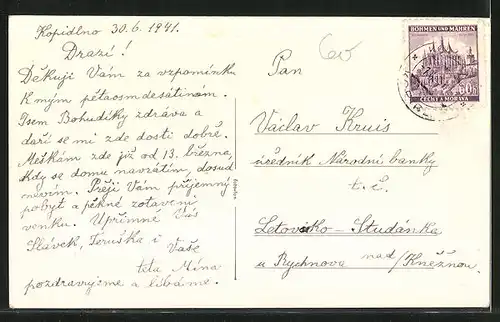 Kopidlno 30.6.1941.
Drazí!
Děkuji Vám za vzpomínku
k mým pětaosmdesátinám.
Jsem Bohudíky zdráva a
daří se mi zde dosti dobře.
Meškám zde již od 13. března,
kdy se domu navrátím, dosud
nevím. Přeji Vám příjemný
pobyt a pěkné zotavení
venku. Upřímně Vás
Slávek, Jeruška i Vaše
teta Mína
pozdravujeme a líbáme.
60
Pan
Václav Kruis
úředník Národní banky
t.č.
Letovisko - Studánka
u Rychnova nad/Kněžnou.
BÖHMEN UND MÄHREN
60h
ČECHY A MORAVA